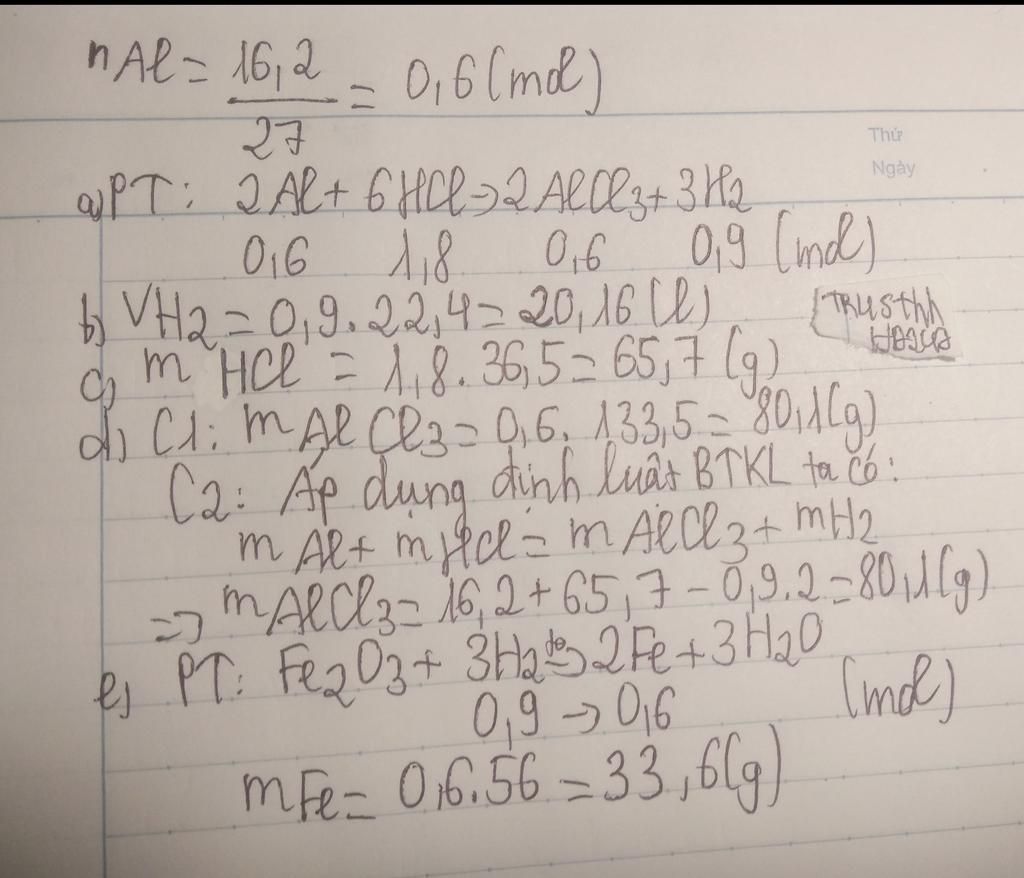 nAl = 16,2 / 27 = 0,6 (mol)
Thứ
Ngày
a) PT: 2Al + 6HCl → 2AlCl3 + 3H2
0,6 1,8 0,6 0,9 (mol)
b) VH2 = 0,9.22,4 = 20,16 (l)
c) m HCl = 1,8.36,5 = 65,7 (g)
d) C1: mAlCl3 = 0,6.133,5 = 80,1 (g)
C2: Áp dụng định luật BTKL ta có:
mAl + mHCl = mAlCl3 + mH2
=> mAlCl3 = 16,2 + 65,7 - 0,9.2 = 80,1 (g)
e) PT: Fe2O3 + 3H2 to→ 2Fe + 3H2O
0,9 → 0,6 (mol)
mFe = 0,6.56 = 33,6 (g)